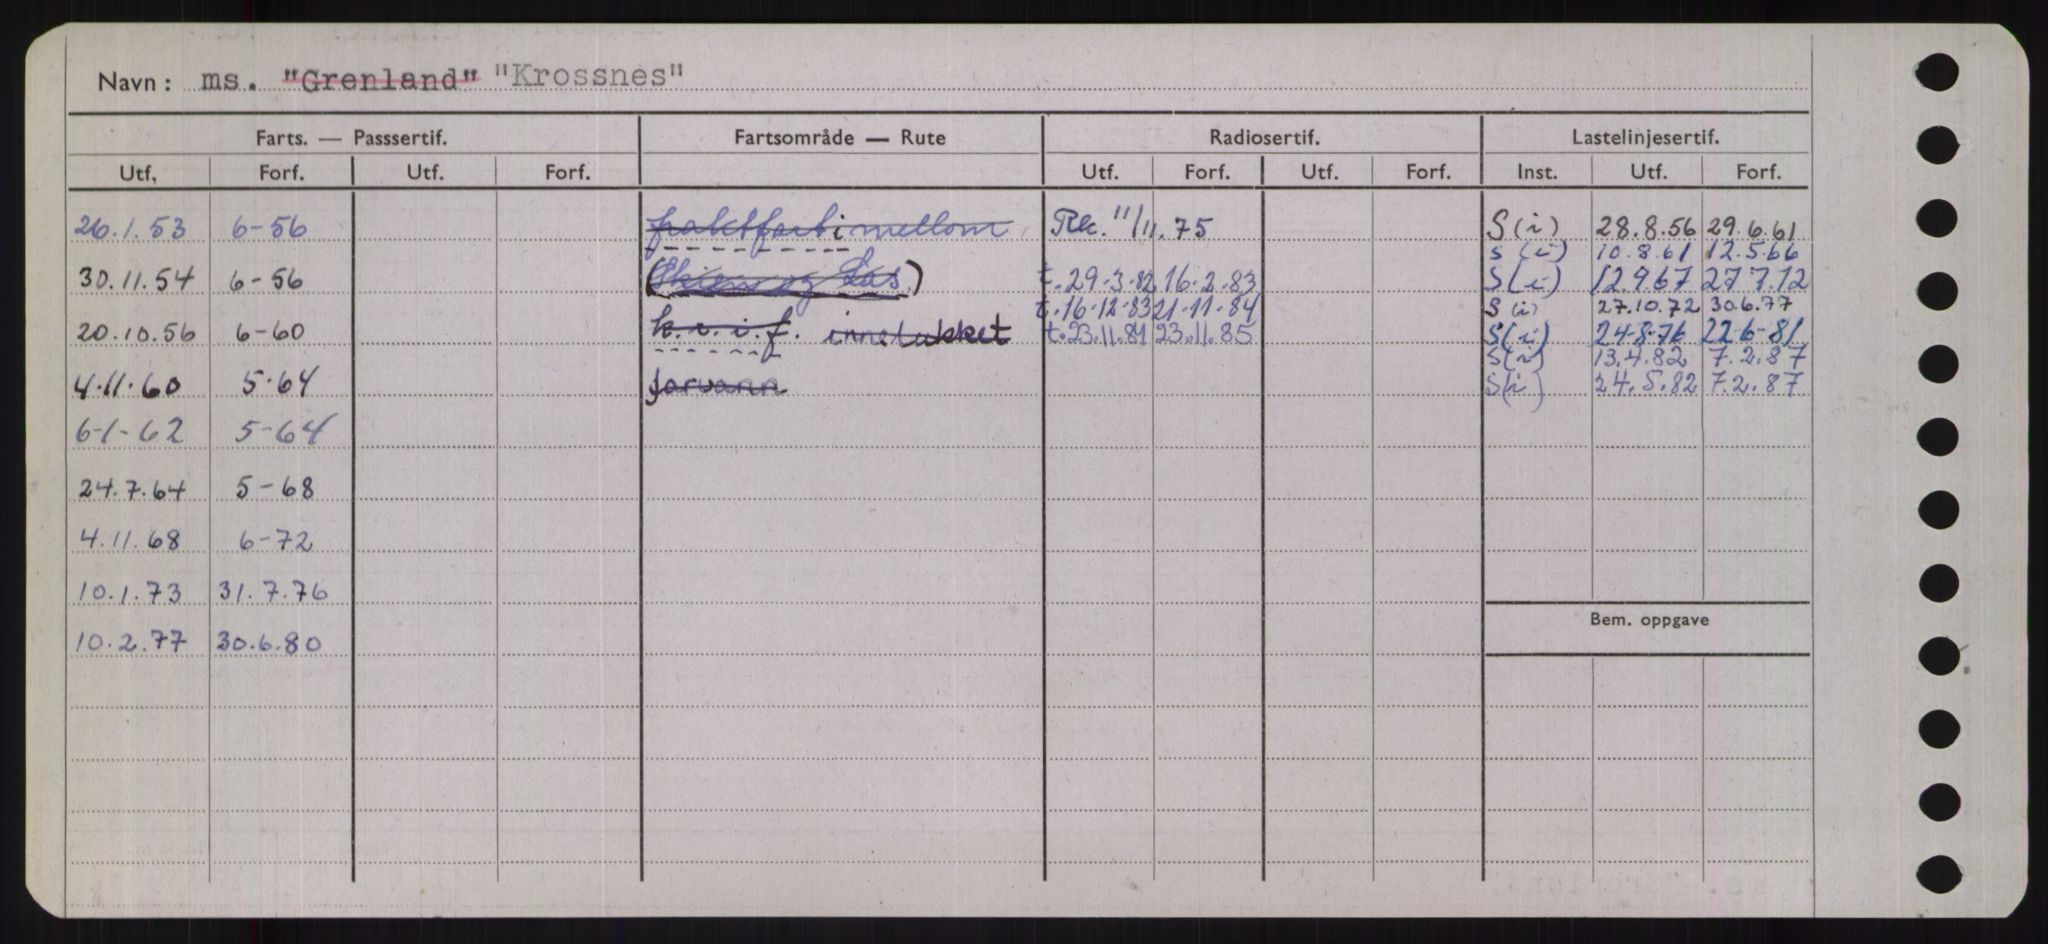 Navn: ms. "Grenland" "Krossnes"
Farts. — Passsertif. Fartsområde — Rute Radiosertif. Lastelinjesertif.
Utf. Forf. Utf. Forf. Utf. Forf. Utf. Forf. Inst. Utf. Forf.
26.1.53 6-56 fraktfart i mellom 11/11.75 S(i) 28.8.56 29.6.61
S(i) 10.8.61 12.5.66
30.11.54 6-56 (Skien og Las) t.29.3.82 16.2.83 S(i) 12.9.67 27.7.72
t.16.12.83 21.11.84 S(i) 27.10.72 30.6.77
20.10.56 6-60 k.r.i.f. innelukket t.23.11.84 23.11.85 S(i) 24.8.76 22-6-81
S(i) 13.4.82 7.2.87
4.11.60 5.64 farvann S(i) 24.5.82 7.2.87
6-1-62 5-64
24.7.64 5-68
4.11.68 6-72
10.1.73 31.7.76
Bem. oppgave
10.2.77 30.6.80